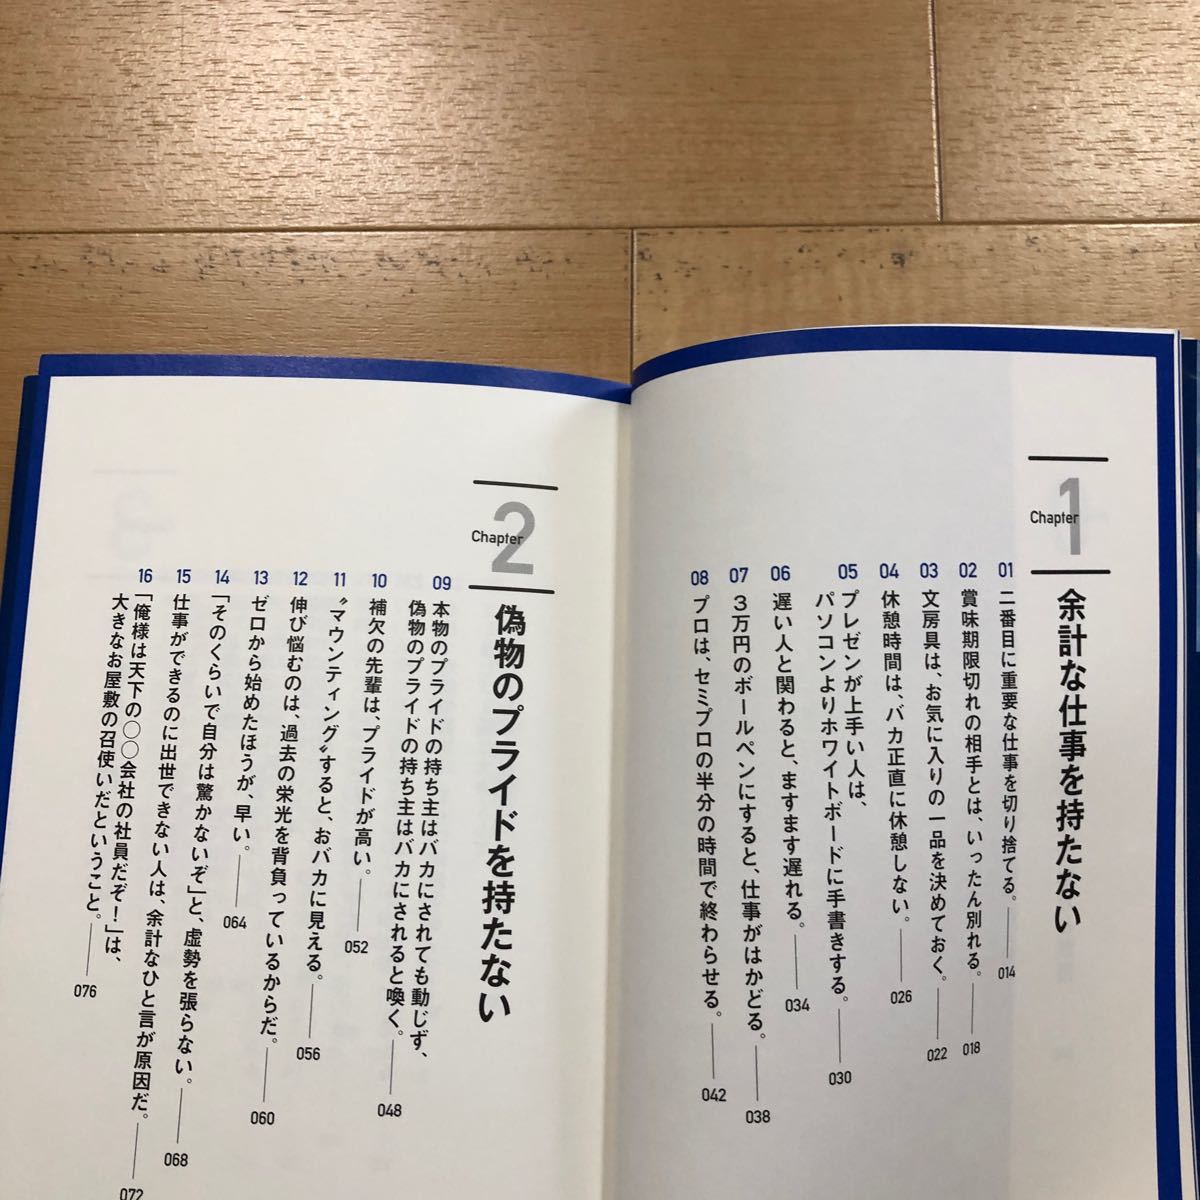 Chapter 1
余計な仕事を持たない
01 二番目に重要な仕事を切り捨てる。 014
02 賞味期限切れの相手とは、いったん別れる。 018
03 文房具は、お気に入りの一品を決めておく。 022
04 休憩時間は、バカ正直に休憩しない。 026
05 プレゼンが上手い人は、
パソコンよりホワイトボードに手書きする。 030
06 遅い人と関わると、ますます遅れる。 034
07 3万円のボールペンにすると、仕事がはかどる。 038
08 プロは、セミプロの半分の時間で終わらせる。 042
Chapter 2
偽物のプライドを持たない
09 本物のプライドの持ち主はバカにされても動じず、
偽物のプライドの持ち主はバカにされると喚く。 048
10 補欠の先輩は、プライドが高い。 052
11 〝マウンティング〟すると、おバカに見える。 056
12 伸び悩むのは、過去の栄光を背負っているからだ。 060
13 ゼロから始めたほうが、早い。 064
14 「そのくらいで自分は驚かないぞ」と、虚勢を張らない。 068
15 仕事ができるのに出世できない人は、余計なひと言が原因だ。 072
16 「俺様は天下の〇〇会社の社員だぞ！」は、
大きなお屋敷の召使いだということ。 076